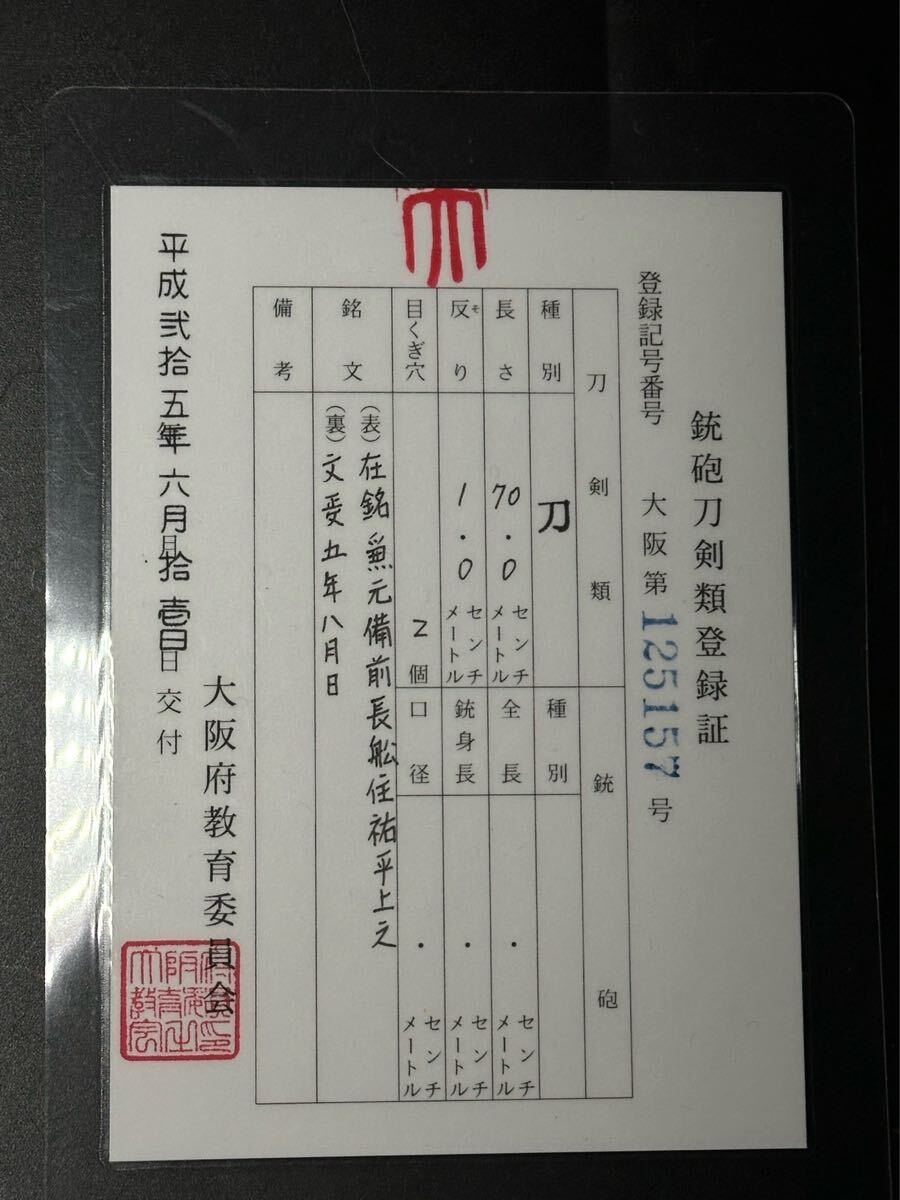 銃砲刀剣類登録証
登録記号番号 大阪第125157号
刀剣類
種別 刀
長さ 70.0センチメートル
反り 1.0センチメートル
ソ
目くぎ穴 2個
銘文 (表)在銘 兼元備前長舩住祐平上之
(裏)文受五年八月日
備考
銃砲
種別
全長 ・ センチメートル
銃身長 ・ センチメートル
口径 ・ センチメートル
平成弐拾五年六月拾壱日交付
大阪府教育委員会